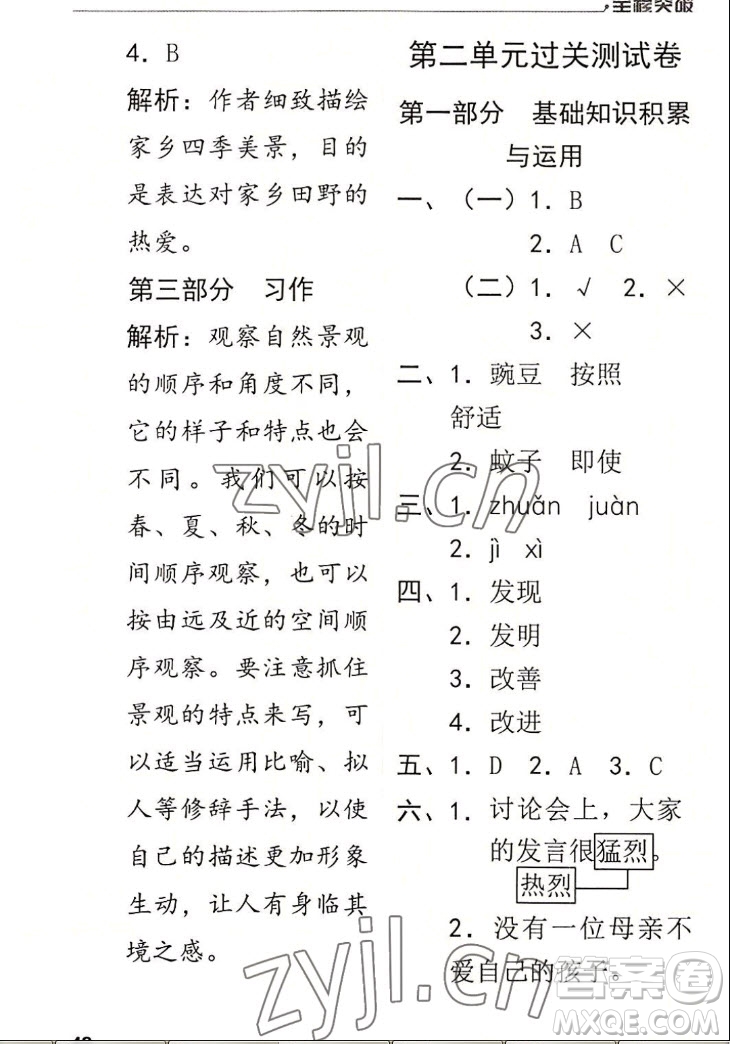 全核突破
4．B
解析：作者细致描绘
家乡四季美景，目的
是表达对家乡田野的
热爱。
第三部分　习作
解析：观察自然景观
的顺序和角度不同，
它的样子和特点也会
不同。我们可以按
春、夏、秋、冬的时
间顺序观察，也可以
按由远及近的空间顺
序观察。要注意抓住
景观的特点来写，可
以适当运用比喻、拟
人等修辞手法，以使
自己的描述更加形象
生动，让人有身临其
境之感。
第二单元过关测试卷
第一部分　基础知识积累
与运用
一、（一）1．B
2．A　C
（二）1．√　2．×
3．×
二、1．豌豆　按照
舒适
2．蚊子　即使
三、1．zhuǎn　juàn
2．jì　xì
四、1．发现
2．发明
3．改善
4．改进
五、1．D　2．A　3．C
六、1．讨论会上，大家
的发言很猛烈。
热烈
2．没有一位母亲不
爱自己的孩子。
zyjl.cn
zyjl.cn
答案卷